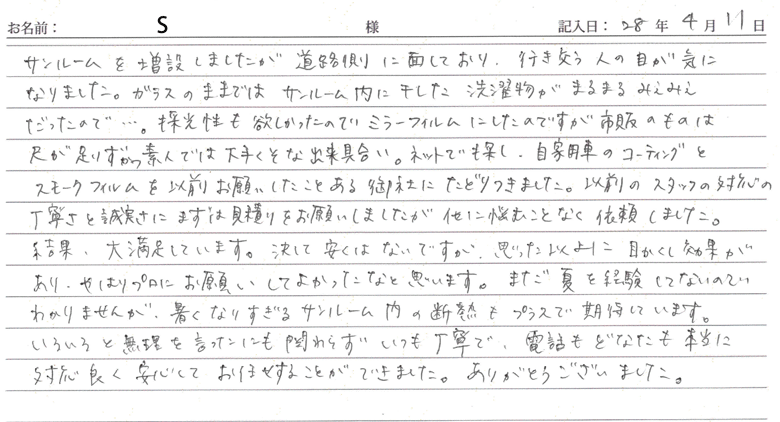 お名前： S 様 記入日：28年 4月11日
サンルームを増設しましたが 道路側に面しており、行き交う人の目が気に
なりました。ガラスのままでは サンルーム内に干した 洗濯物がまるまるみえみえ
だったので…。採光性も欲しかったのでミラーフィルムにしたのですが市販のものは
尺が足りずかつ素人では下手くそな出来具合い。ネットでも探し、自家用車のコーティングと
スモークフィルムを以前お願いしたことある御社にたどりつきました。以前のスタッフの対応の
丁寧さと誠実さにまずは見積りをお願いしましたが他に悩むことなく依頼しました。
結果、大満足しています。決して安くはないですが、思った以上に目かくし効果が
あり、やはりプロにお願いしてよかったなと思います。まだ夏を経験してないので
わかりませんが、暑くなりすぎるサンルーム内の断熱もプラスで期待しています。
いろいろと無理を言ったにも関わらず いつも丁寧で、電話もどなたも本当に
対応良く安心して お任せすることができました。ありがとうございました。